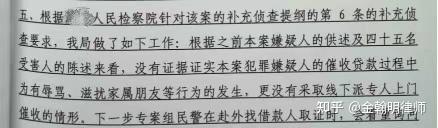 五、根据 人民检察院针对该案的补充侦查提纲的第 6 条的补充侦
查要求，我局做了如下工作：根据之前本案嫌疑人的供述及四十五名
受害人的陈述来看，没有证据证实本案犯罪嫌疑人的催收贷款过程中
为有辱骂、滋扰家属朋友等行为的发生，更没有采取线下派专人上门
催收的情形。下一步专案组民警在赴外找借款人取证时，会着重
知乎 @金翰明律师